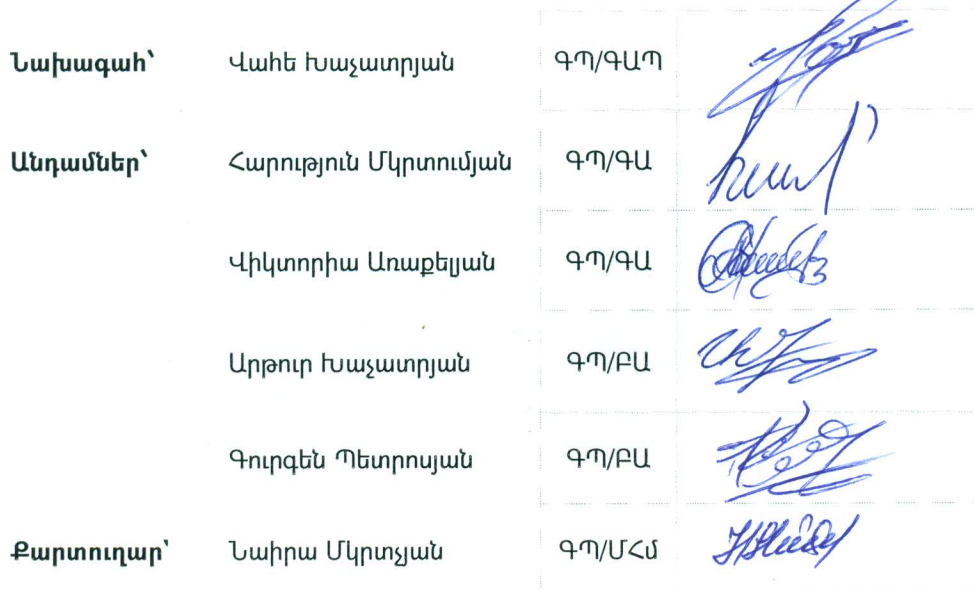 Նախագահ՝ Վահե Խաչատրյան ԳՊ/ԳԱՊ
Անդամներ՝ Հարություն Մկրտումյան ԳՊ/ԳԱ
Վիկտորիա Առաքելյան ԳՊ/ԳԱ
Արթուր Խաչատրյան ԳՊ/ԲԱ
Գուրգեն Պետրոսյան ԳՊ/ԲԱ
Քարտուղար՝ Նաիրա Մկրտչյան ԳՊ/ՄՀմ